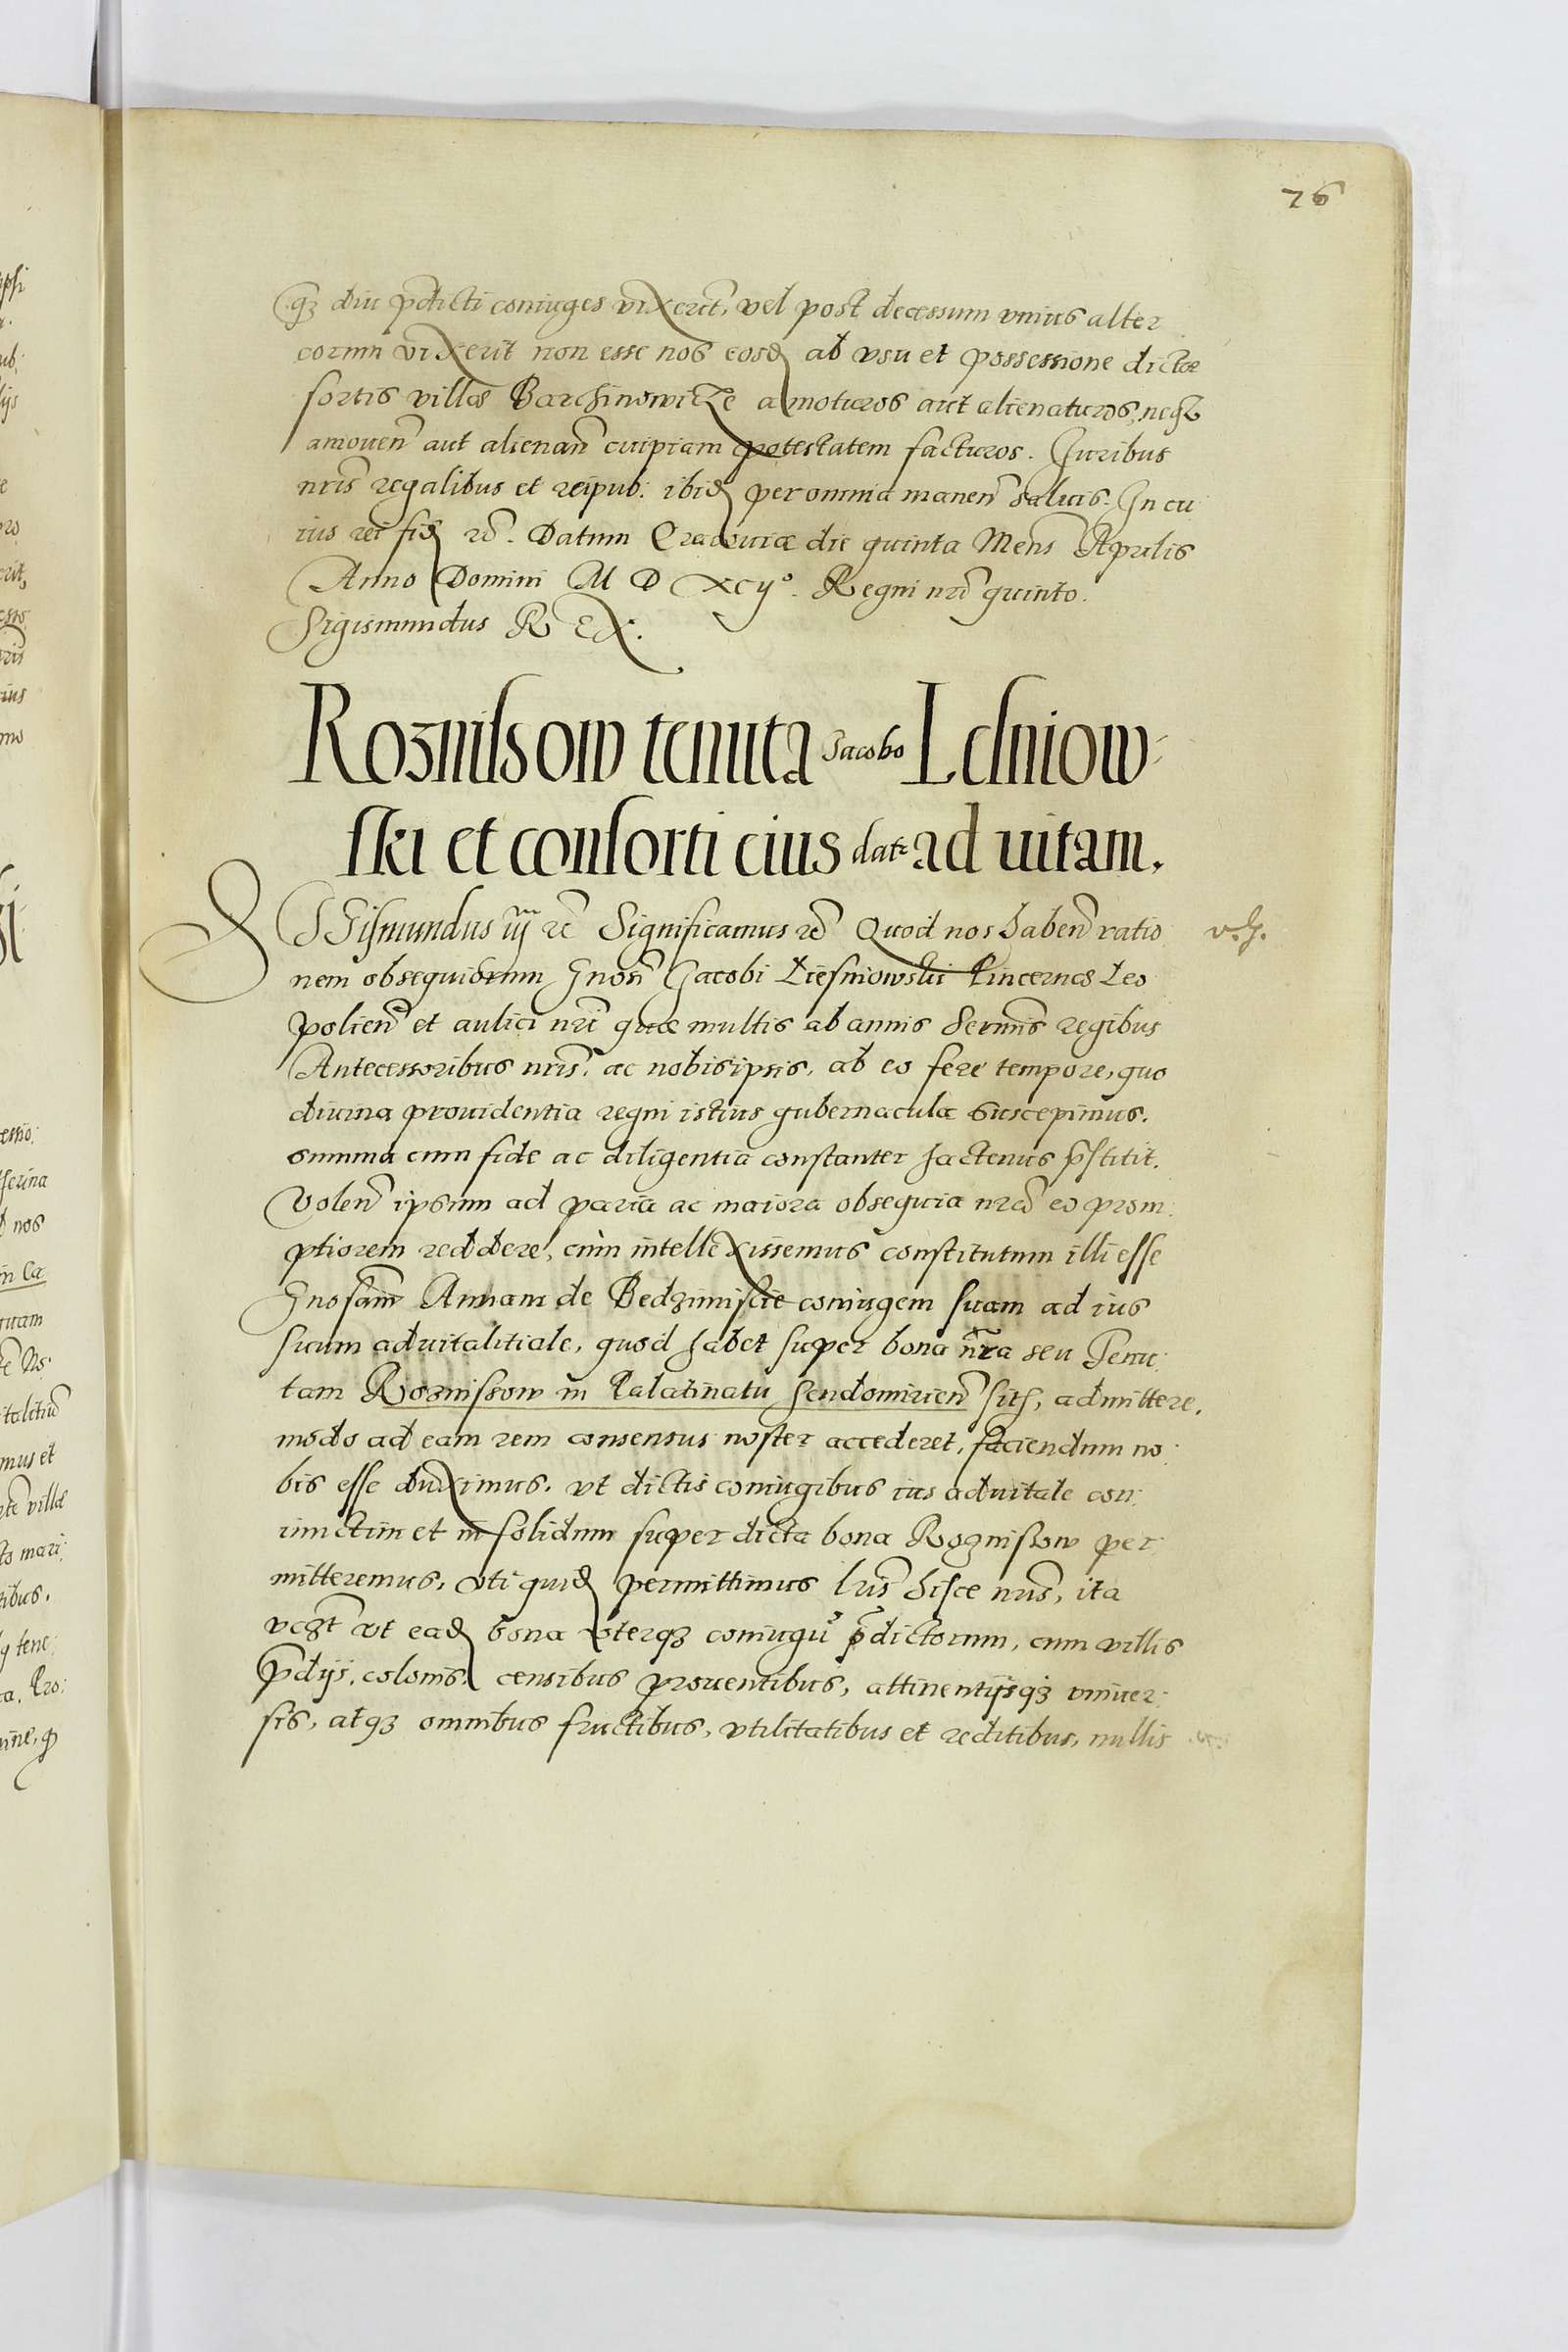 76
qʒ diu p̄dicti coniuges vixerīt, vel post decessum vnius alter
eorum vixerit non esse nos eosđ ab vsu et possessione dictæ
sortis villæ Barchinowicze amoturos aut alienaturos, neqʒ
amouen̄ aut alienan̄ cuipiam potestatem facturos. Juribus
nr̄is regalibus et reipub: ibiđ per omnia manen̄ saluis. In cu
ius rei fiđ rc̄. Datum Cracouiæ die quinta Mens̄ Aprilis
Anno Domini M D XCijº. Regni nr̄i quinto.
Sigismundus REX.
Rozniſsow tenuta Jacobo Leſniow:
ſki et conſorti eius datr ad uitam.
SIGiſmundus iij rc̄ Significamus rc̄ Quod nos haben̄ ratio
nem obsequiorum Gnosi Jacobi Lieſniowski Pincernæ Leo
polien̄ et aulici nr̄i quæ multis ab annis Sermīs regibus
Antecessoribus nr̄is, ac nobis ipsis, ab eo fere tempore, quo
diuina prouidentia regni istius gubernacula suscepimus.
summa cum fide ac diligentia constanter hactenus p̄stitit.
Volen̄ ipsum ad paria ac maiora obsequia nr̄a eo prom:
ptiorem reddere, cùm intellexissemus constitutum illi eſse
Gnosam̄ Annam de Bedzimiſcie coniugem ſuam ad ius
ſuum aduitalitiale, quod habet ſuper bona nr̄a seu Tenu:
tam Rozniſzow in Palatinatu Sendomirien̄ ſitħ, admittere.
modo ad eam rem consensus noſter accederet, faciendum no:
bis eſse duximus, vt dictis coniugibus ius aduitale con:
iunctim et in ſolidum ſuper dicta bona Rozniſzow per:
mitteremus, vti quiđ permittimus lr̄is hiſce nr̄is, ita
vcʒt vt eađ bona vterqʒ coniugū p̄dictorum, cum villis
p̄dijs, colonis, censibus prouentibus, attinentijsqʒ vniuer:
sis, atqʒ omnibus fructibus, vtilitatibus et reditibus, nullis